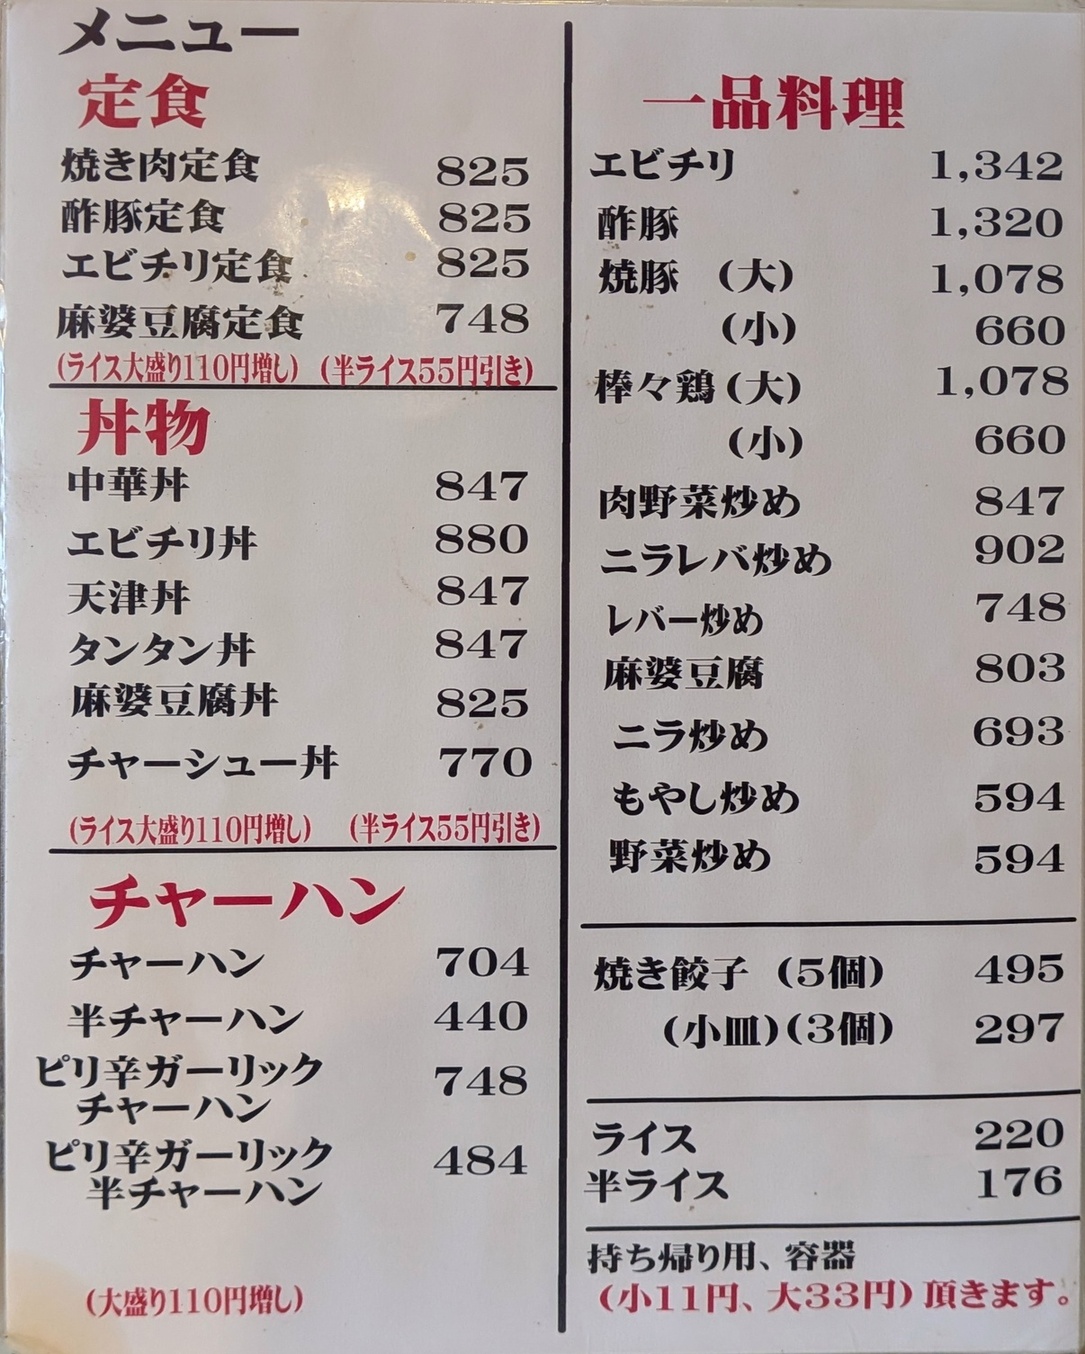 メニュー
定食
焼き肉定食 825
酢豚定食 825
エビチリ定食 825
麻婆豆腐定食 748
(ライス大盛り110円増し) (半ライス55円引き)
丼物
中華丼 847
エビチリ丼 880
天津丼 847
タンタン丼 847
麻婆豆腐丼 825
チャーシュー丼 770
(ライス大盛り110円増し) (半ライス55円引き)
チャーハン
チャーハン 704
半チャーハン 440
ピリ辛ガーリック
チャーハン 748
ピリ辛ガーリック
半チャーハン 484
(大盛り110円増し)
一品料理
エビチリ 1,342
酢豚 1,320
焼豚 (大) 1,078
(小) 660
棒々鶏(大) 1,078
(小) 660
肉野菜炒め 847
ニラレバ炒め 902
レバー炒め 748
麻婆豆腐 803
ニラ炒め 693
もやし炒め 594
野菜炒め 594
焼き餃子 (5個) 495
(小皿)(3個) 297
ライス 220
半ライス 176
持ち帰り用、容器
(小11円、大33円)頂きます。